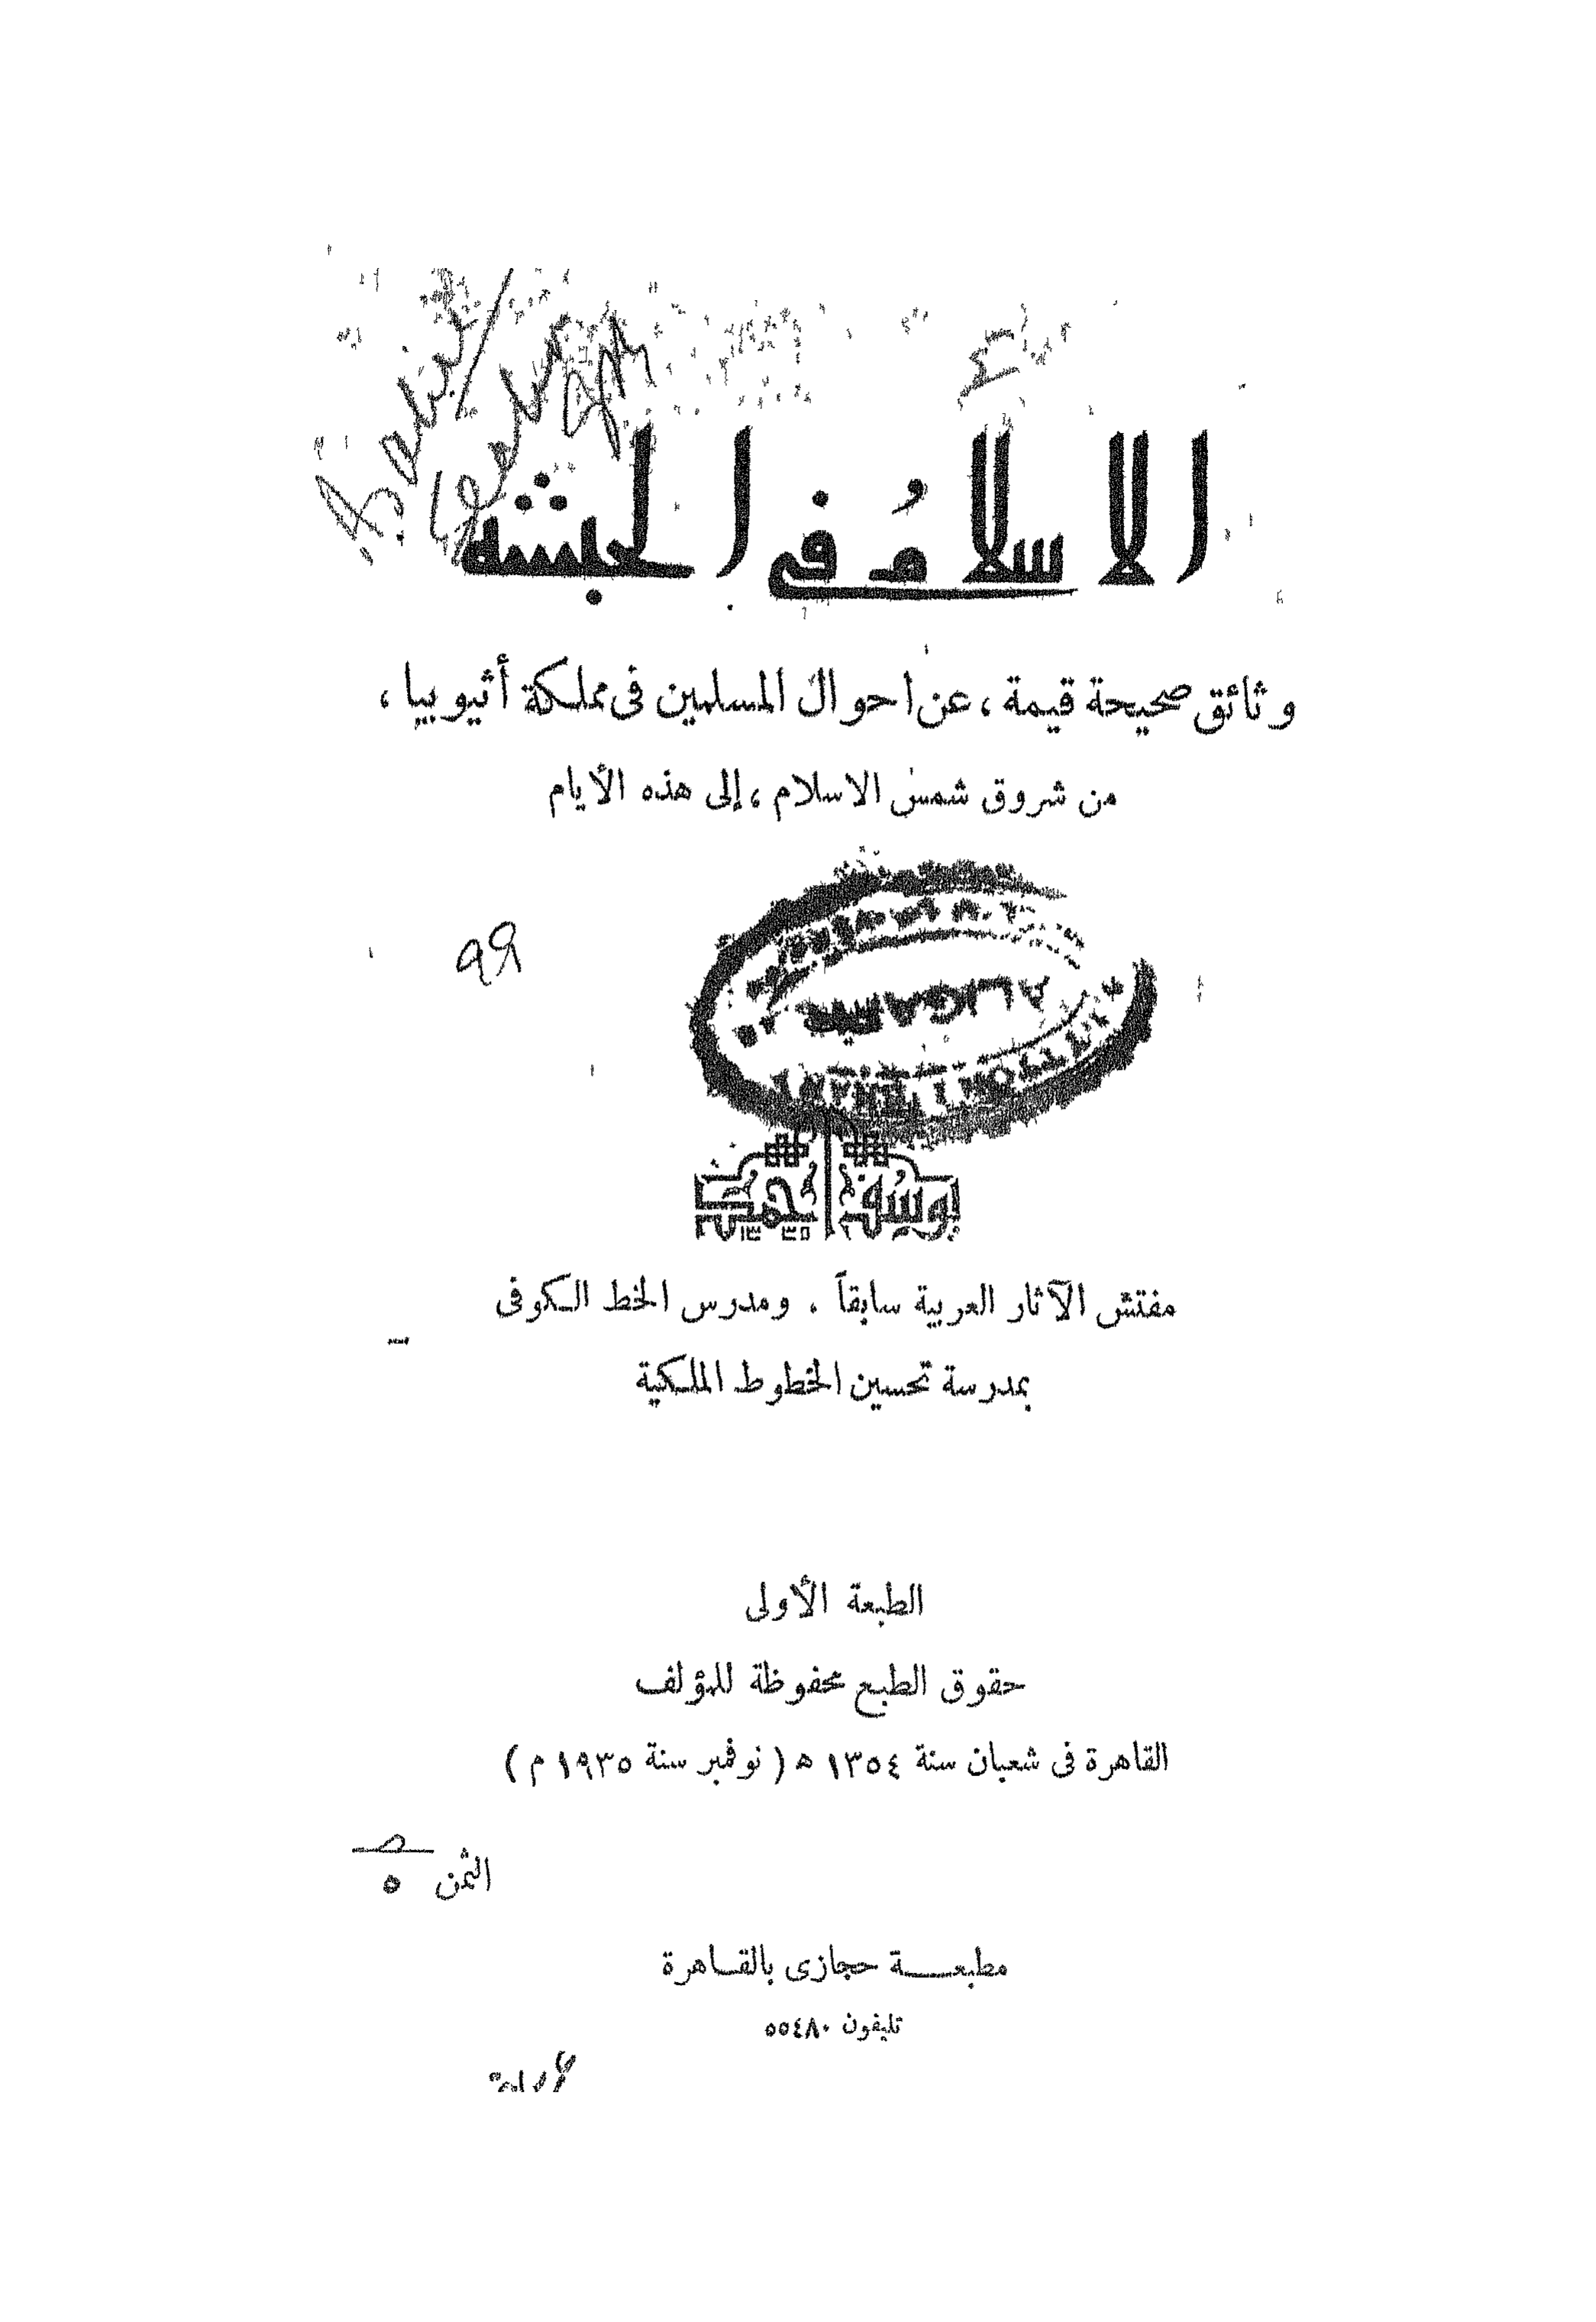 الاسلام فى الحبشة
وثائق صحيحة قيمة ، عن احوال المسلمين فى مملكة أثيوبيا ،
من شروق شمس الاسلام ، إلى هذه الأيام
99
ALIGARH
يوسف احمد
١٣٣٥
مفتش الآثار العربية سابقاً . ومدرس الخط الكوفى
بمدرسة تحسين الخطوط الملكية
الطبعة الأولى
حقوق الطبع محفوظة للمؤلف
القاهرة فى شعبان سنة ١٣٥٤ ه ( نوفمبر سنة ١٩٣٥ م )
الثمن ٥
مطبعــة حجازى بالقــاهرة
تليفون ٥٥٤٨٠